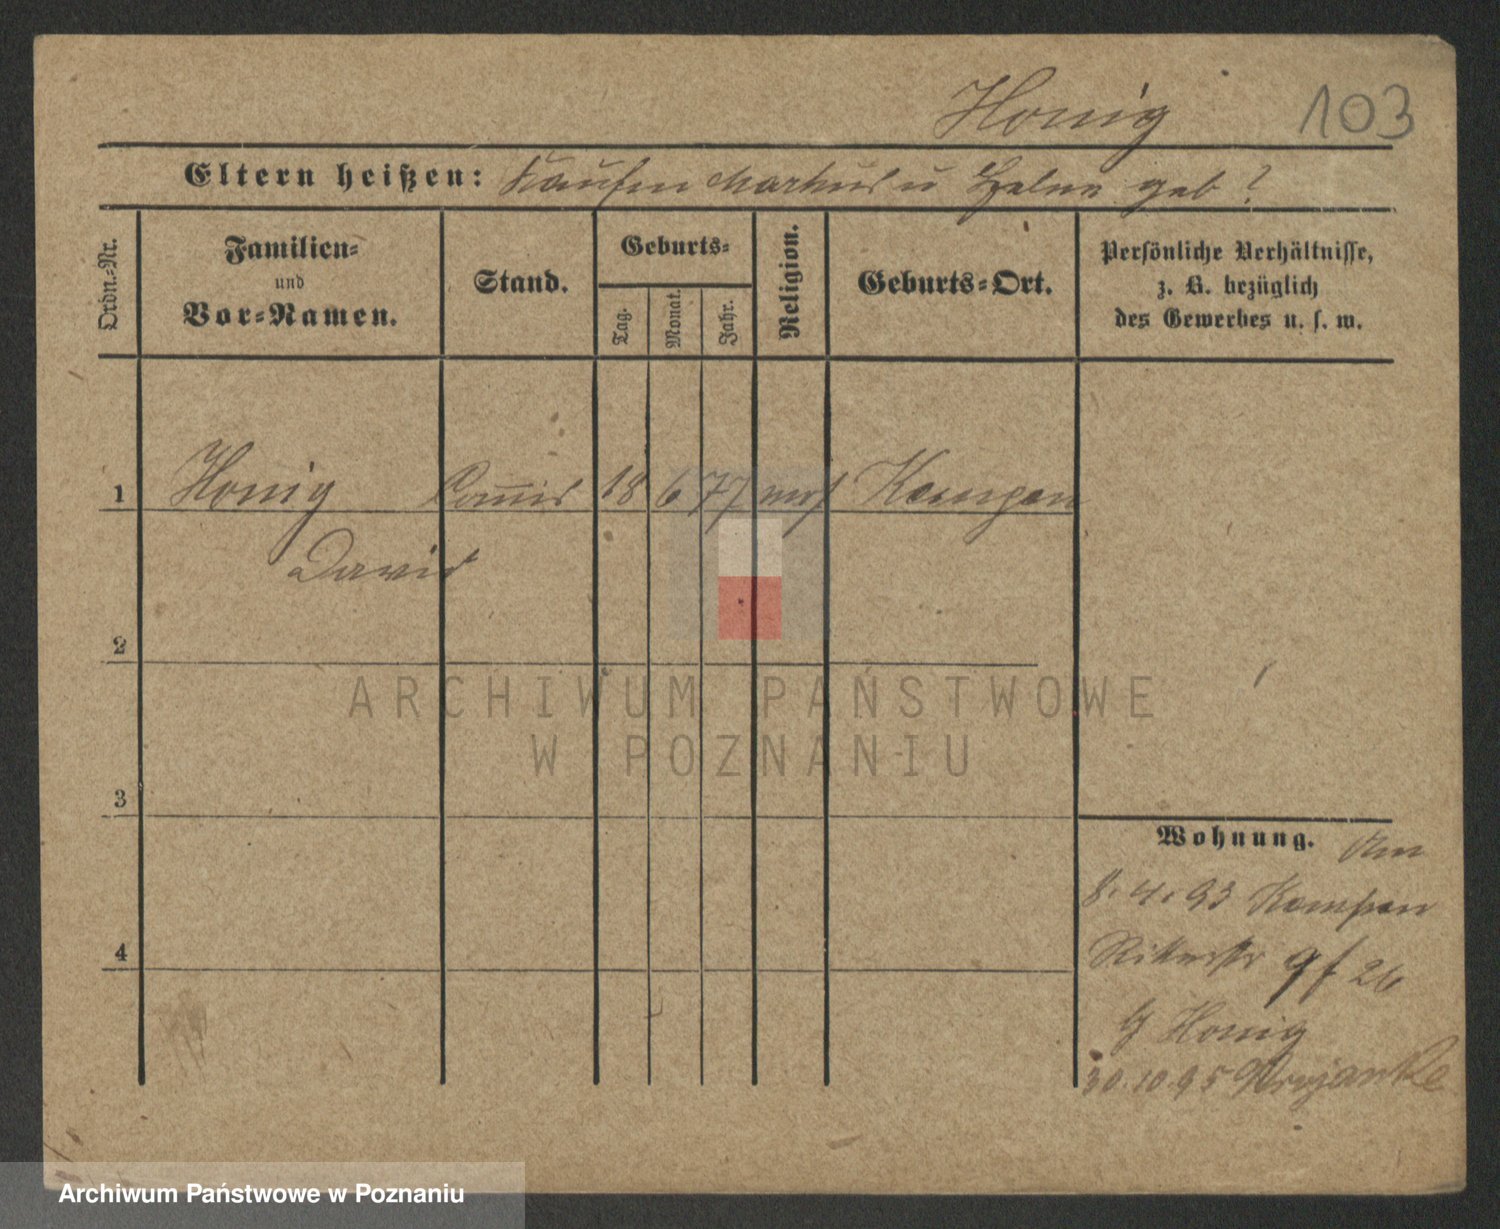 Honig 103
Eltern heißen: Kaufm Markus u Helene geb ?
Ordn.-Nr.
Familien-
und
Vor-Namen.
Stand.
Geburts-
Tag.
Monat.
Jahr.
Religion.
Geburts-Ort.
Persönliche Verhältnisse,
z. B. bezüglich
des Gewerbes u. s. w.
1 Honig Commis 18 6 77 mos Kempen
David
2
ARCHIWUM PAŃSTWOWE
W POZNANIU
3
Wohnung. Am
8.4.93 Kempen
Ritterstr 26
Honig
30.10.95
4
Archiwum Państwowe w Poznaniu